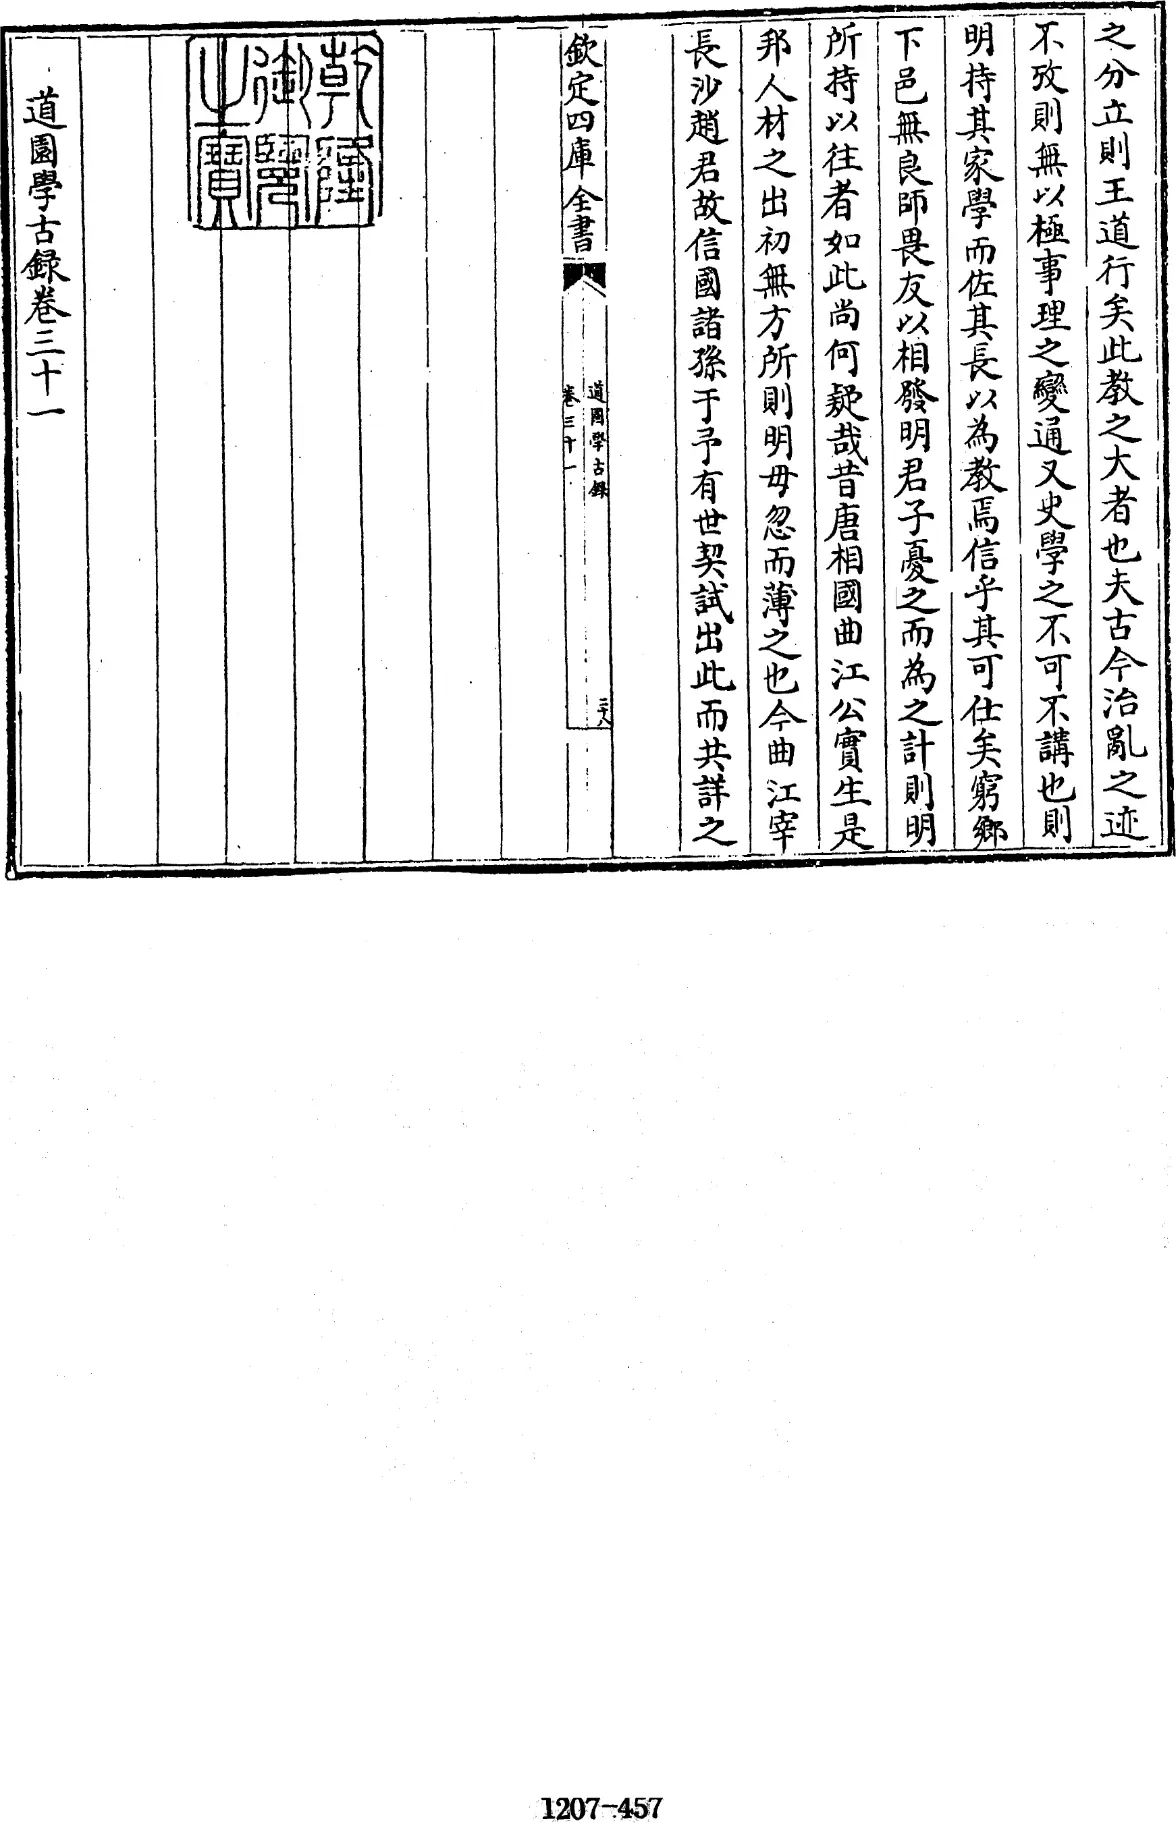 之分立則王道行矣此教之大者也夫古今治亂之迹
不攷則無以極事理之變通又史學之不可不講也則
明持其家學而佐其長以為教焉信乎其可仕矣窮鄉
下邑無良師畏友以相發明君子憂之而為之計則明
所持以往者如此尚何疑哉昔唐相國曲江公實生是
邦人材之出初無方所則明毋忽而薄之也今曲江宰
長沙趙君故信國諸孫于予有世契試出此而共詳之
欽定四庫全書
道園學古録
卷三十一
三十八
乾隆
御覽
之寶
道園學古録卷三十一
1207-457